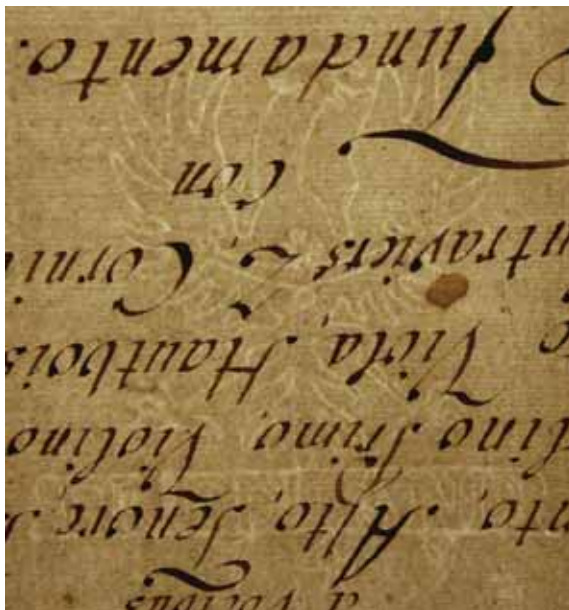 a Vocibus
nto, Alto, Tenore,
lino Primo, Violino
Viola, Hautbois
ntraviers 2, Corni
Con
Fundamento.